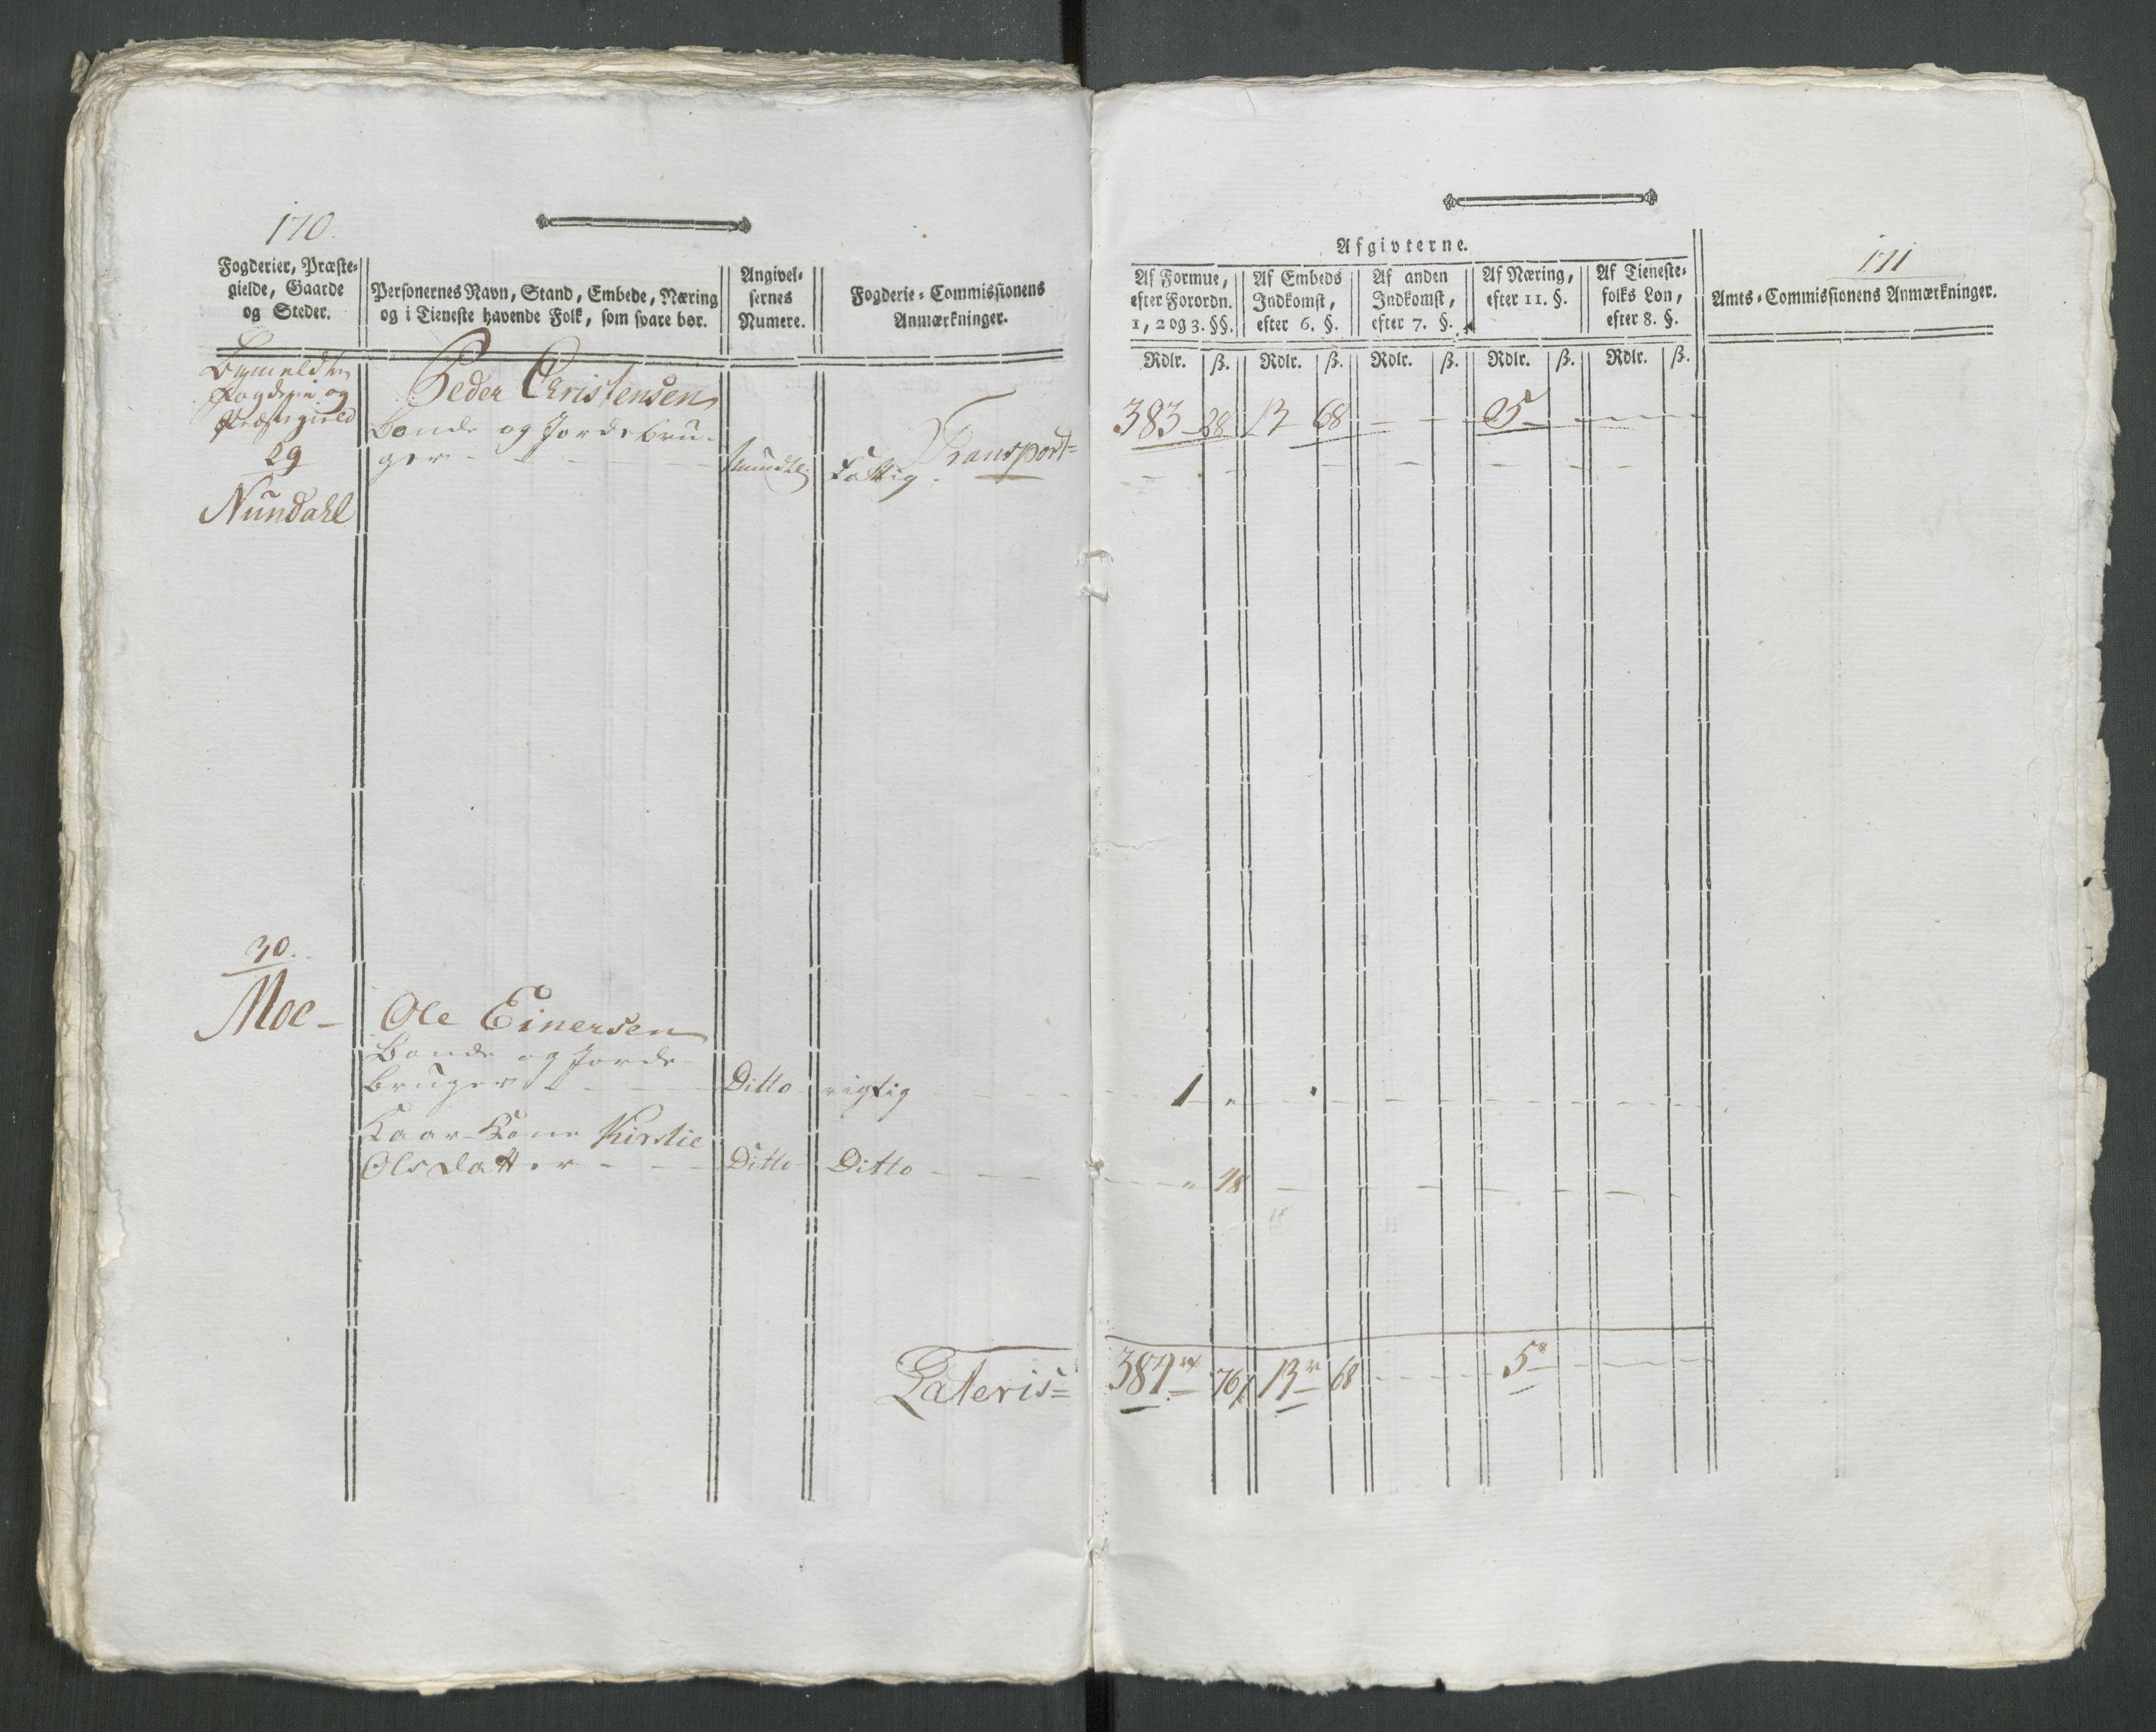 170.
Fogderier, Præste-
gielde, Gaarde
og Steder.
Personernes Navn, Stand, Embede, Næring
og i Tieneste havende Folk, som svare bør.
Angivel-
sernes
Numere.
Fogderie-Commissionens
Anmærkninger.
Bemeldte
Fogderie og
Præstegield
29
Nundahl
Peder Christensen
Bonde og Jordebru-
ger - - - Mundtl. Fattig.
Transport =
30.
Moe -
Ole Einersen
Bonde og Jorde-
bruger - - - Ditto rigtig
Kaar-Kone Kirstie
Olsdatter - - - Ditto - Ditto -
Lateris =
171
Afgivterne.
Af Formue,
efter Forordn.
1, 2 og 3. §§.
Af Embeds
Indkomst,
efter 6. §.
Af anden
Indkomst,
efter 7. §.
Af Næring,
efter 11. §.
Af Tieneste-
folks Løn,
efter 8. §.
Amts-Commissionens Anmærkninger.
Rdlr. ß. Rdlr. ß. Rdlr. ß. Rdlr. ß. Rdlr. ß.
383 - 28 13 - 68 - -
1 -
" 48
76 13 68 - - - 5